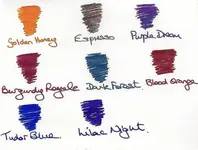 Golden Honey Espresso Purple Dream
Burgundy Royale Dark Forest Blood Orange
Tudor Blue. Lilac Night.